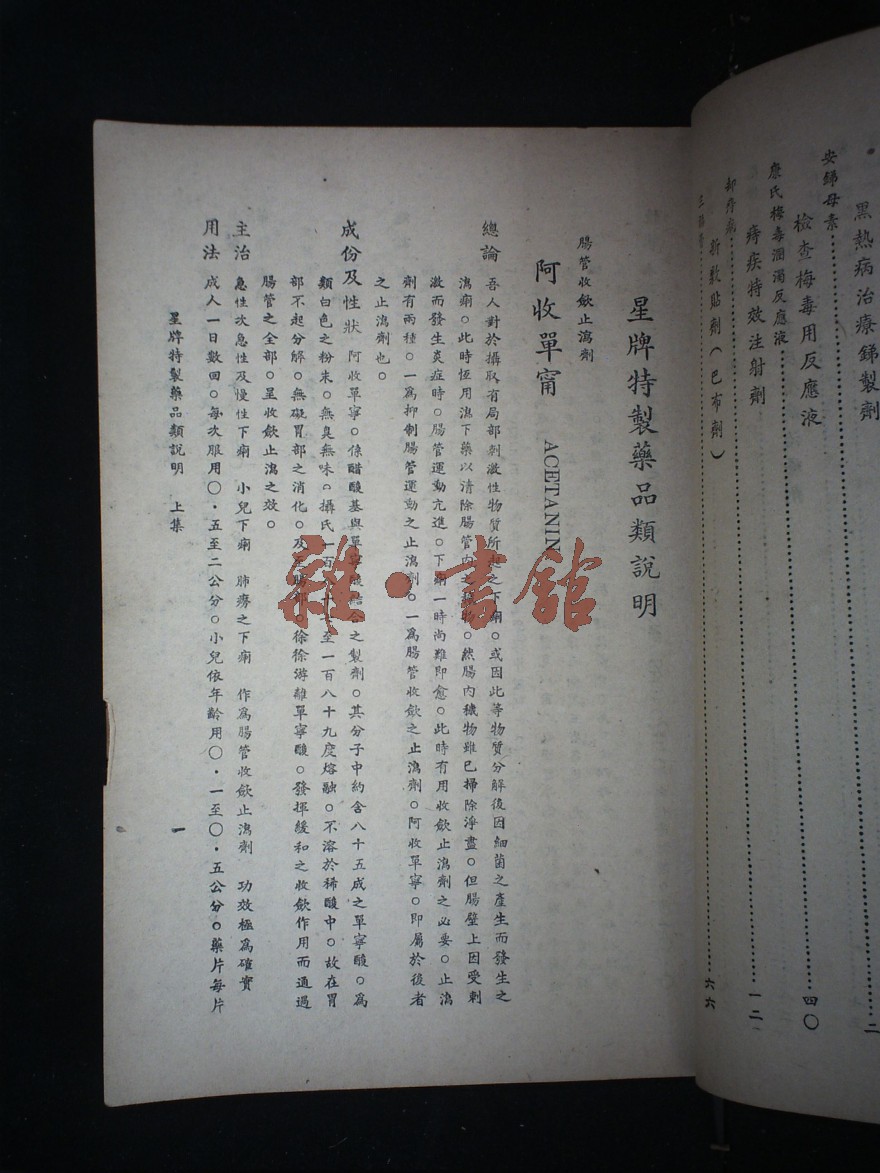 黑熱病治療銻製劑
安銻母素⋯⋯二
檢查梅毒用反應液
康氏梅毒溷濁反應液⋯⋯四〇
痔疾特效注射劑
⋯⋯一二
新敷貼劑(巴布劑)
⋯⋯六六
星牌特製藥品類說明
腸管收斂止瀉劑
阿收單甯 ACETANIN
總論 吾人對於攝取有局部刺激性物質所起之下痢。或因此等物質分解後因細菌之產生而發生之
瀉痢。此時恆用瀉下藥以清除腸管內之穢物。然腸內穢物雖已掃除淨盡。但腸壁上因受刺
激而發生炎症時。腸管運動亢進。下痢一時尚難即愈。此時有用收斂止瀉劑之必要。止瀉
劑有兩種。一為抑制腸管運動之止瀉劑。一為腸管收斂之止瀉劑。阿收單寧。即屬於後者
之止瀉劑也。
成份及性狀 阿收單寧。係醋酸基與單寧酸結合之製劑。其分子中約含八十五成之單寧酸。為
類白色之粉末。無臭無味。攝氏一百八十至一百八十九度熔融。不溶於稀酸中。故在胃
部不起分解。無礙胃部之消化。及至腸部。徐徐游離單寧酸。發揮緩和之收斂作用而通過
腸管之全部。呈收斂止瀉之效。
主治 急性次急性及慢性下痢 小兒下痢 肺癆之下痢 作為腸管收斂止瀉劑 功效極為確實
用法 成人一日數回。每次服用〇·五至二公分。小兒依年齡用〇·一至〇·五公分。藥片每片
星牌特製藥品類說明 上集 一
雜·書館